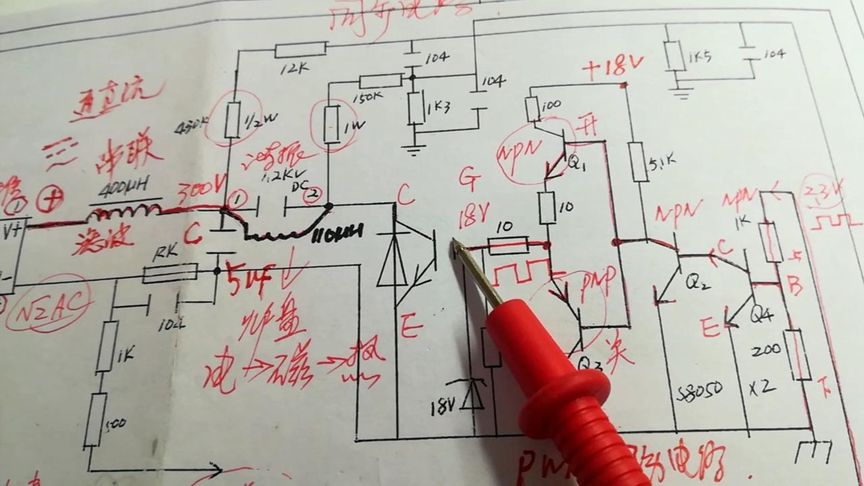 12K
104
104
1K5
104
+18V
通直流
430K
1/2W
150K
1K3
1W
100
开
NPN
Q1
串联
400UH
300V
①
谐振
1.2KV
DC
②
5.1K
G
18V
C
10
10
NPN
NPN
1K
2.3V
①
⊕
V+
滤波
C
110UH
PNP
Q2
C
上
B
RK
5UF
E
Q4
E
N2AC
104
炉盘
电→磁→热
关
Q3
200
下
1K
500
18V
S8050
X2